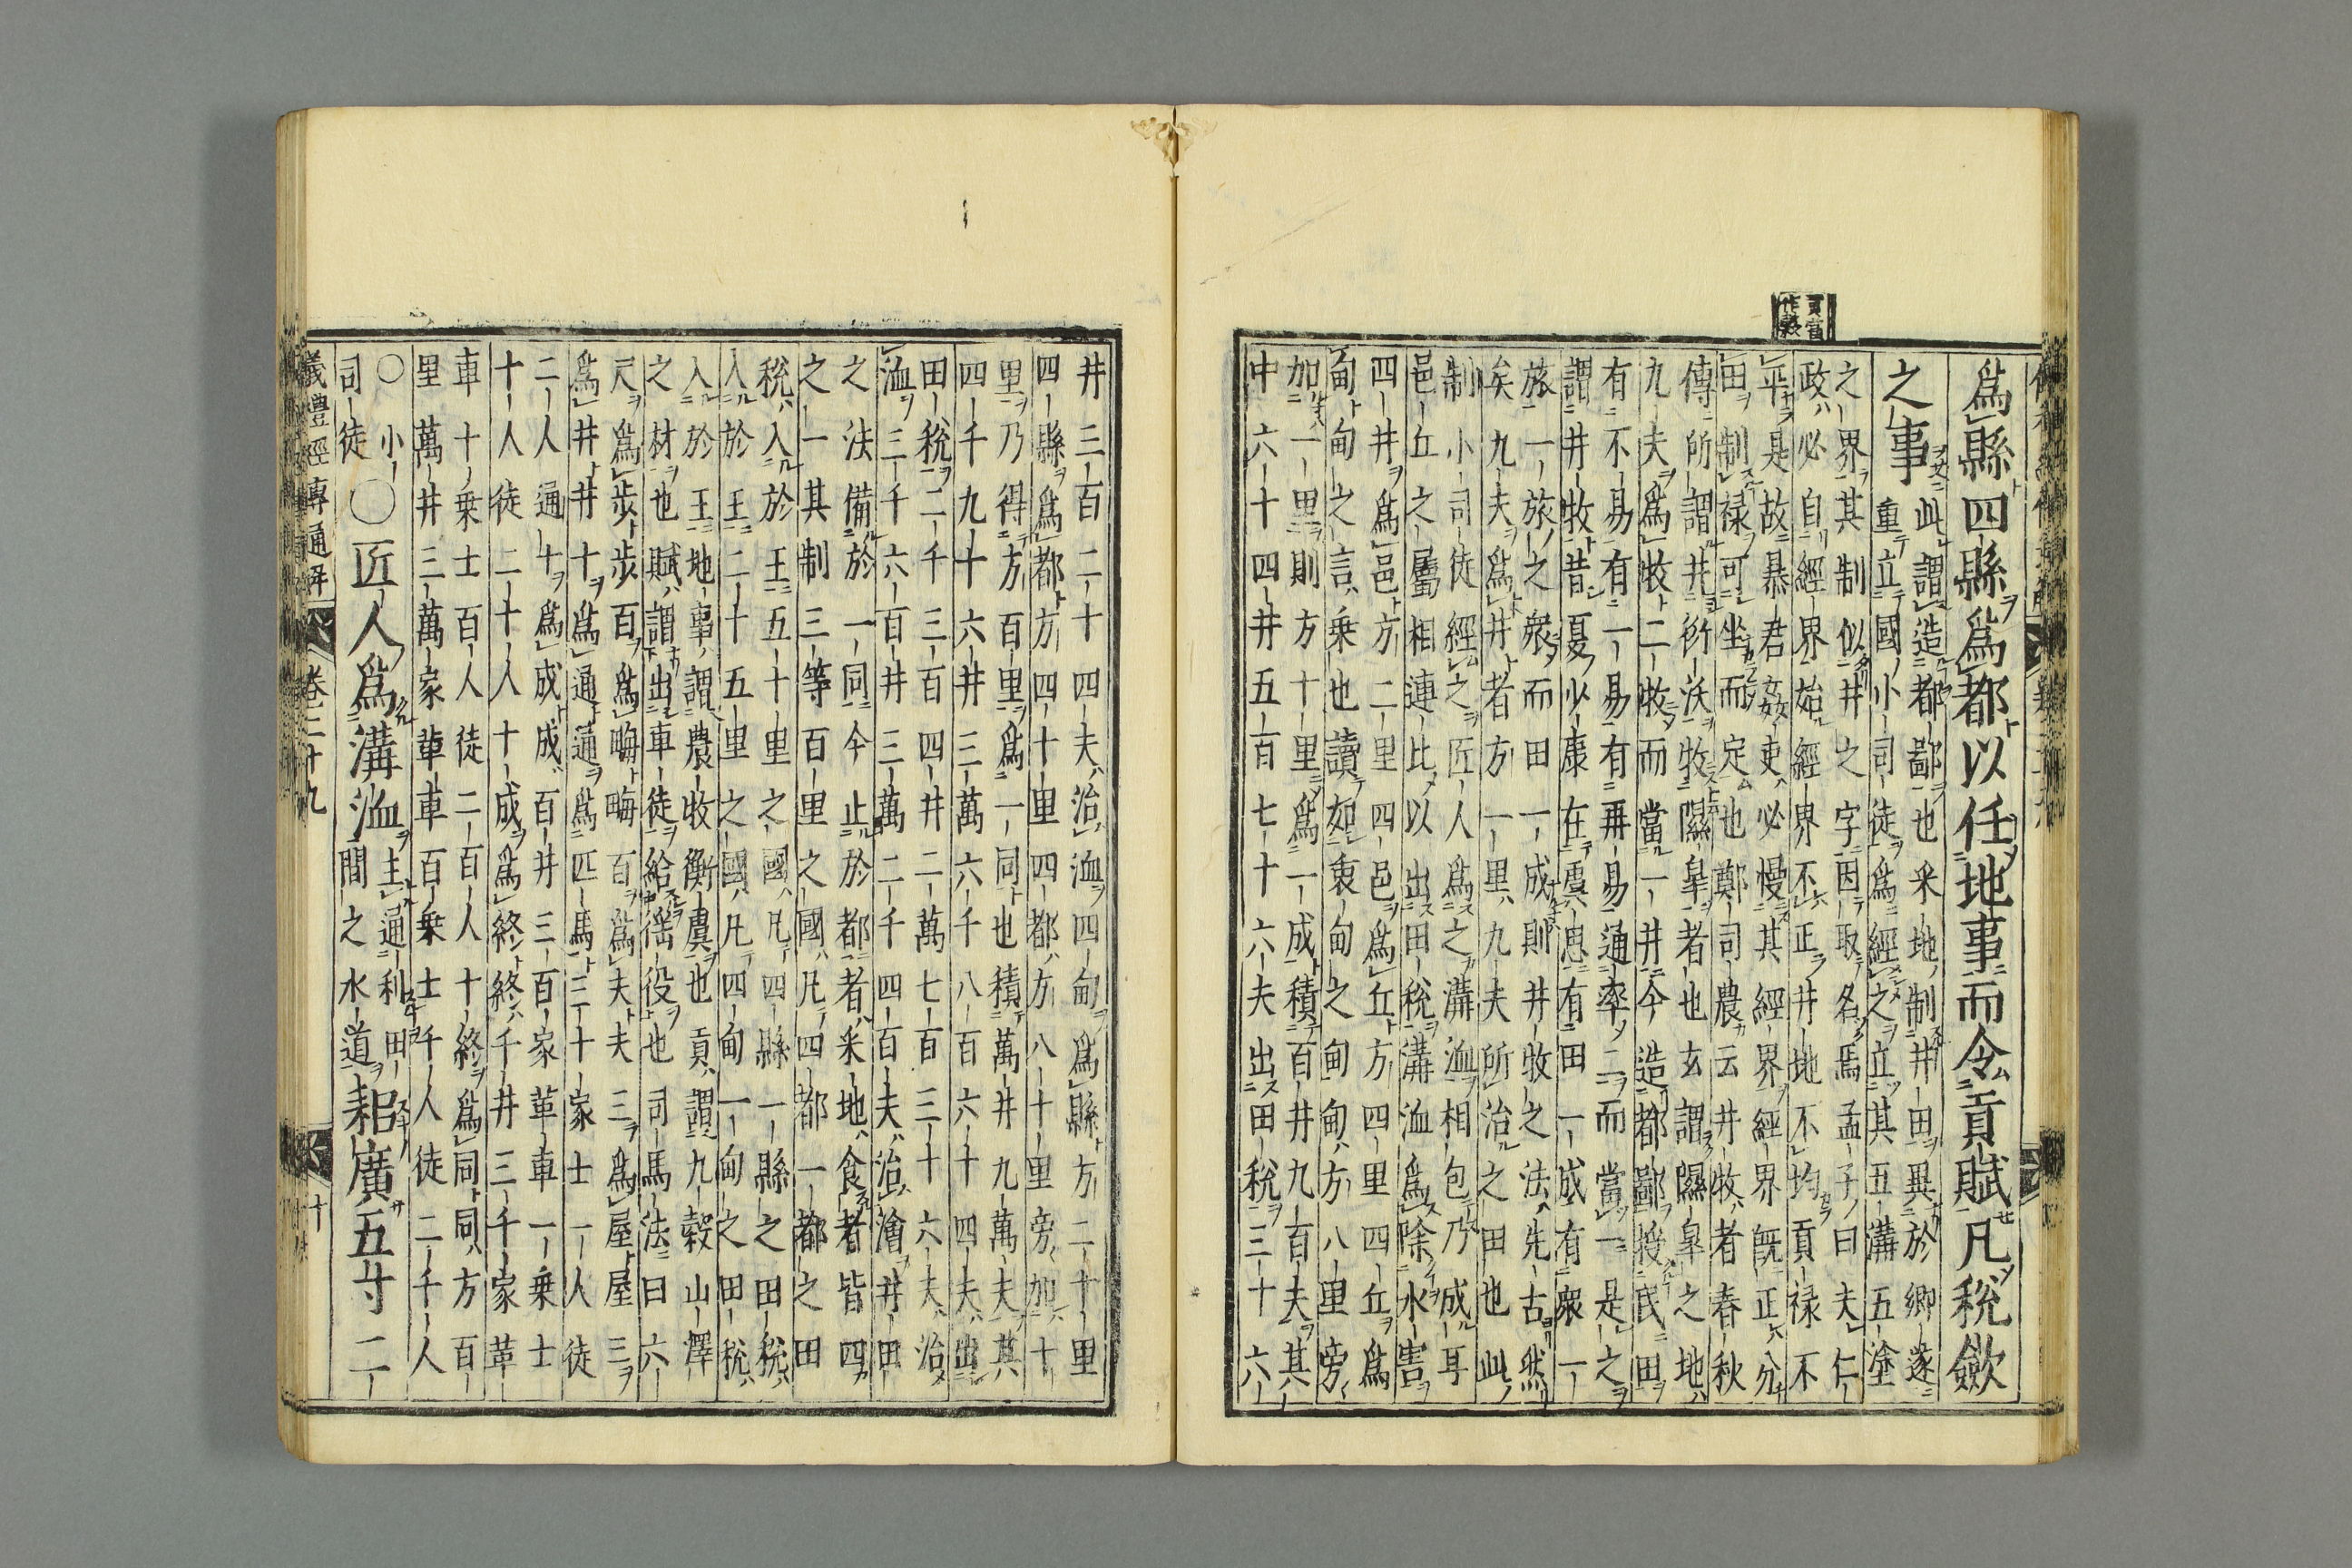 貢當
作穀
爲縣四縣爲都以任地事而令貢賦凡稅斂
之事
此謂造都鄙也采地制井田異於鄉遂
重立國小司徒爲經之立其五溝五塗
之界其制似井之字因取名焉孟子曰夫仁
政必自經界始經界不正井地不均貢禄不
平是故暴君姦吏必慢其經界經界旣正分
田制禄可坐而定也鄭司農云井牧者春秋
傳所謂井衍沃牧隰皐者也玄謂隰皐之地
九夫爲牧二牧而當一井今造都鄙授民田
有不易有一易有再易通率二而當一是之
謂井牧昔夏少康在虞思有田一成有衆一
旅一旅之衆而田一成則井牧之法先古然
矣九夫爲井者方一里九夫所治之田也此
制小司徒經之匠人爲之溝洫相包乃成耳
邑丘之屬相連比以出田稅溝洫爲除水害
四井爲邑方二里四邑爲丘方四里四丘爲
甸甸之言乗也讀如衷甸之甸甸方八里旁
加一里則方十里爲一成積百井九百夫其
中六十四井五百七十六夫出田稅三十六
井三百二十四夫治洫四甸爲縣方二十里
四縣爲都方四十里四都方八十里旁加十
里乃得方百里爲一同也積萬井九萬夫其
四千九十六井三萬六千八百六十四夫出
田稅二千三百四井二萬七百三十六夫治
洫三千六百井三萬二千四百夫治澮井田
之法備於一同今止於都者采地食者皆四
之一其制三等百里之國凡四都一都之田
稅入於王五十里之國凡四縣一縣之田稅
入於王二十五里之國凡四甸一甸之田稅
入於王地事謂農牧衡虞也貢謂九穀山澤
之材也賦謂出車徒給徭役也司馬法曰六
尺爲步步百爲畮畮百爲夫夫三爲屋屋三
爲井井十爲通通爲匹馬三十家士一人徒
二人通十爲成成百井三百家革車一乗士
十人徒二十人十成爲終終千井三千家革
車十乗士百人徒二百人十終爲同同方百
里萬井三萬家革車百乗士千人徒二千人
○小
司徒
○匠人爲溝洫
主通利田
間之水道
耜廣五寸二
儀禮經傳通解 卷二十九 十